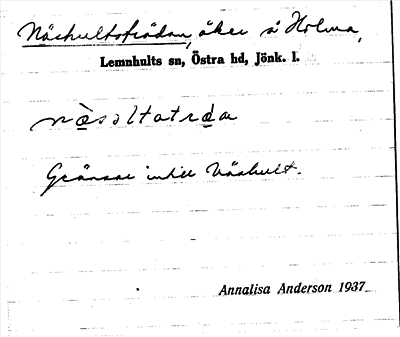 Näshultsfrädan, åker å Holma,
Lemnhults sn, Östra hd, Jönk. l.
Gränsar intill Näshult.
Annalisa Anderson 1937